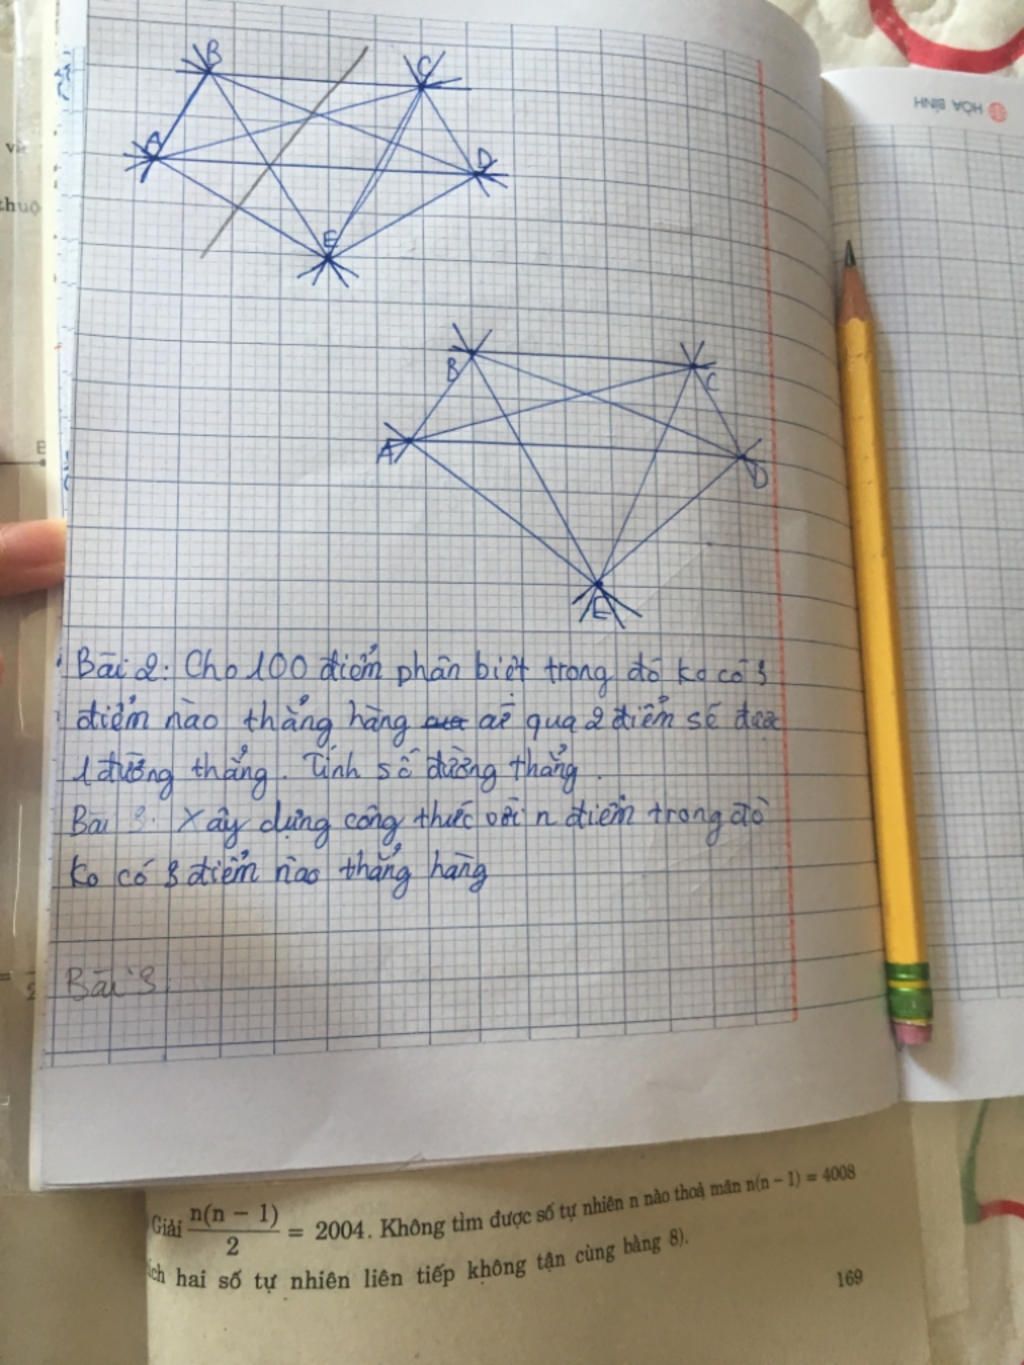 B
C
A
D
E
B
C
A
D
E
Bài 2: Cho 100 điểm phân biệt trong đó ko có 3
điểm nào thẳng hàng cứ qua 2 điểm sẽ được
1 đường thẳng. Tính số đường thẳng.
Bài 3. Xây dựng công thức với n điểm trong đó
ko có 3 điểm nào thẳng hàng
Bài 3.
HÒA BÌNH
Giải n(n − 1)/2 = 2004. Không tìm được số tự nhiên n nào thoả mãn n(n − 1) = 4008
hai số tự nhiên liên tiếp không tận cùng bằng 8).
169